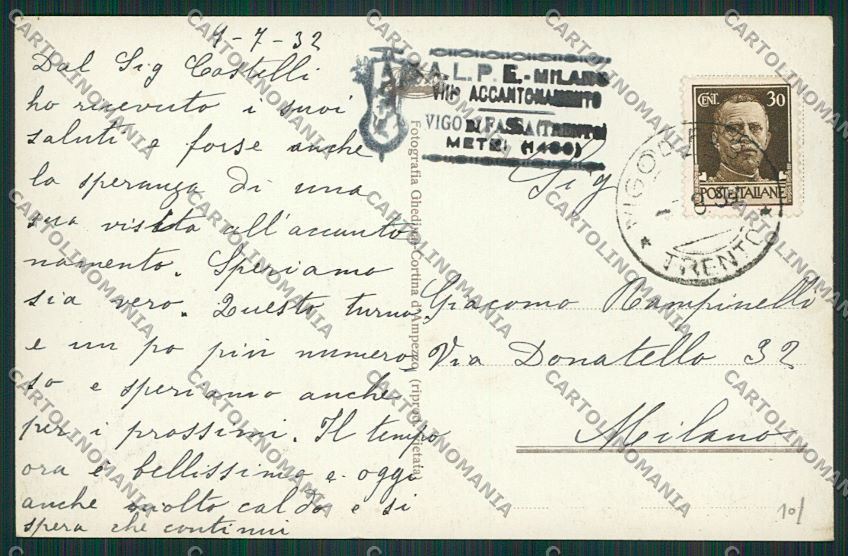 1-7-32
Dal Sig Castelli
ho ricevuto i suoi
saluti e forse anche
la speranza di una
sua visita all'accanto
namento. Speriamo
sia vero. Questo turno
e un po più numero
so e speriamo anche
per i prossimi. Il tempo
ora è bellissimo e oggi
anche molto caldo e si
spera che continui
A.L.P.E.-MILANO
VIII° ACCANTONAMENTO
VIGO DI FASSA (TRENTO)
METRI (1400)
Fotografia Ghedina-Cortina d'Ampezzo (riprod. vietata)
CENT. 30
POSTE ITALIANE
VIGO DI FASSA
TRENTO
Sig
Giacomo Rampinelli
Via Donatello 32
Milano
10/
CARTOLINOMANIA